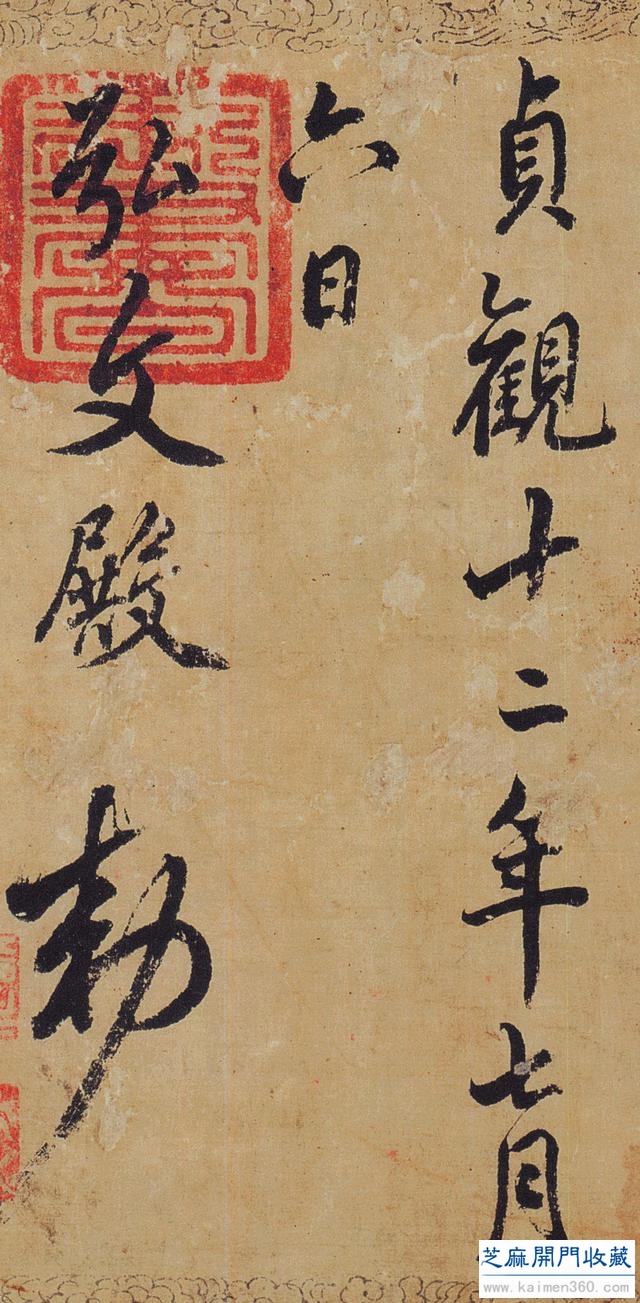 貞觀十二年七月
六日
弘文殿勅
芝麻開門收藏
www.kaimen360.com